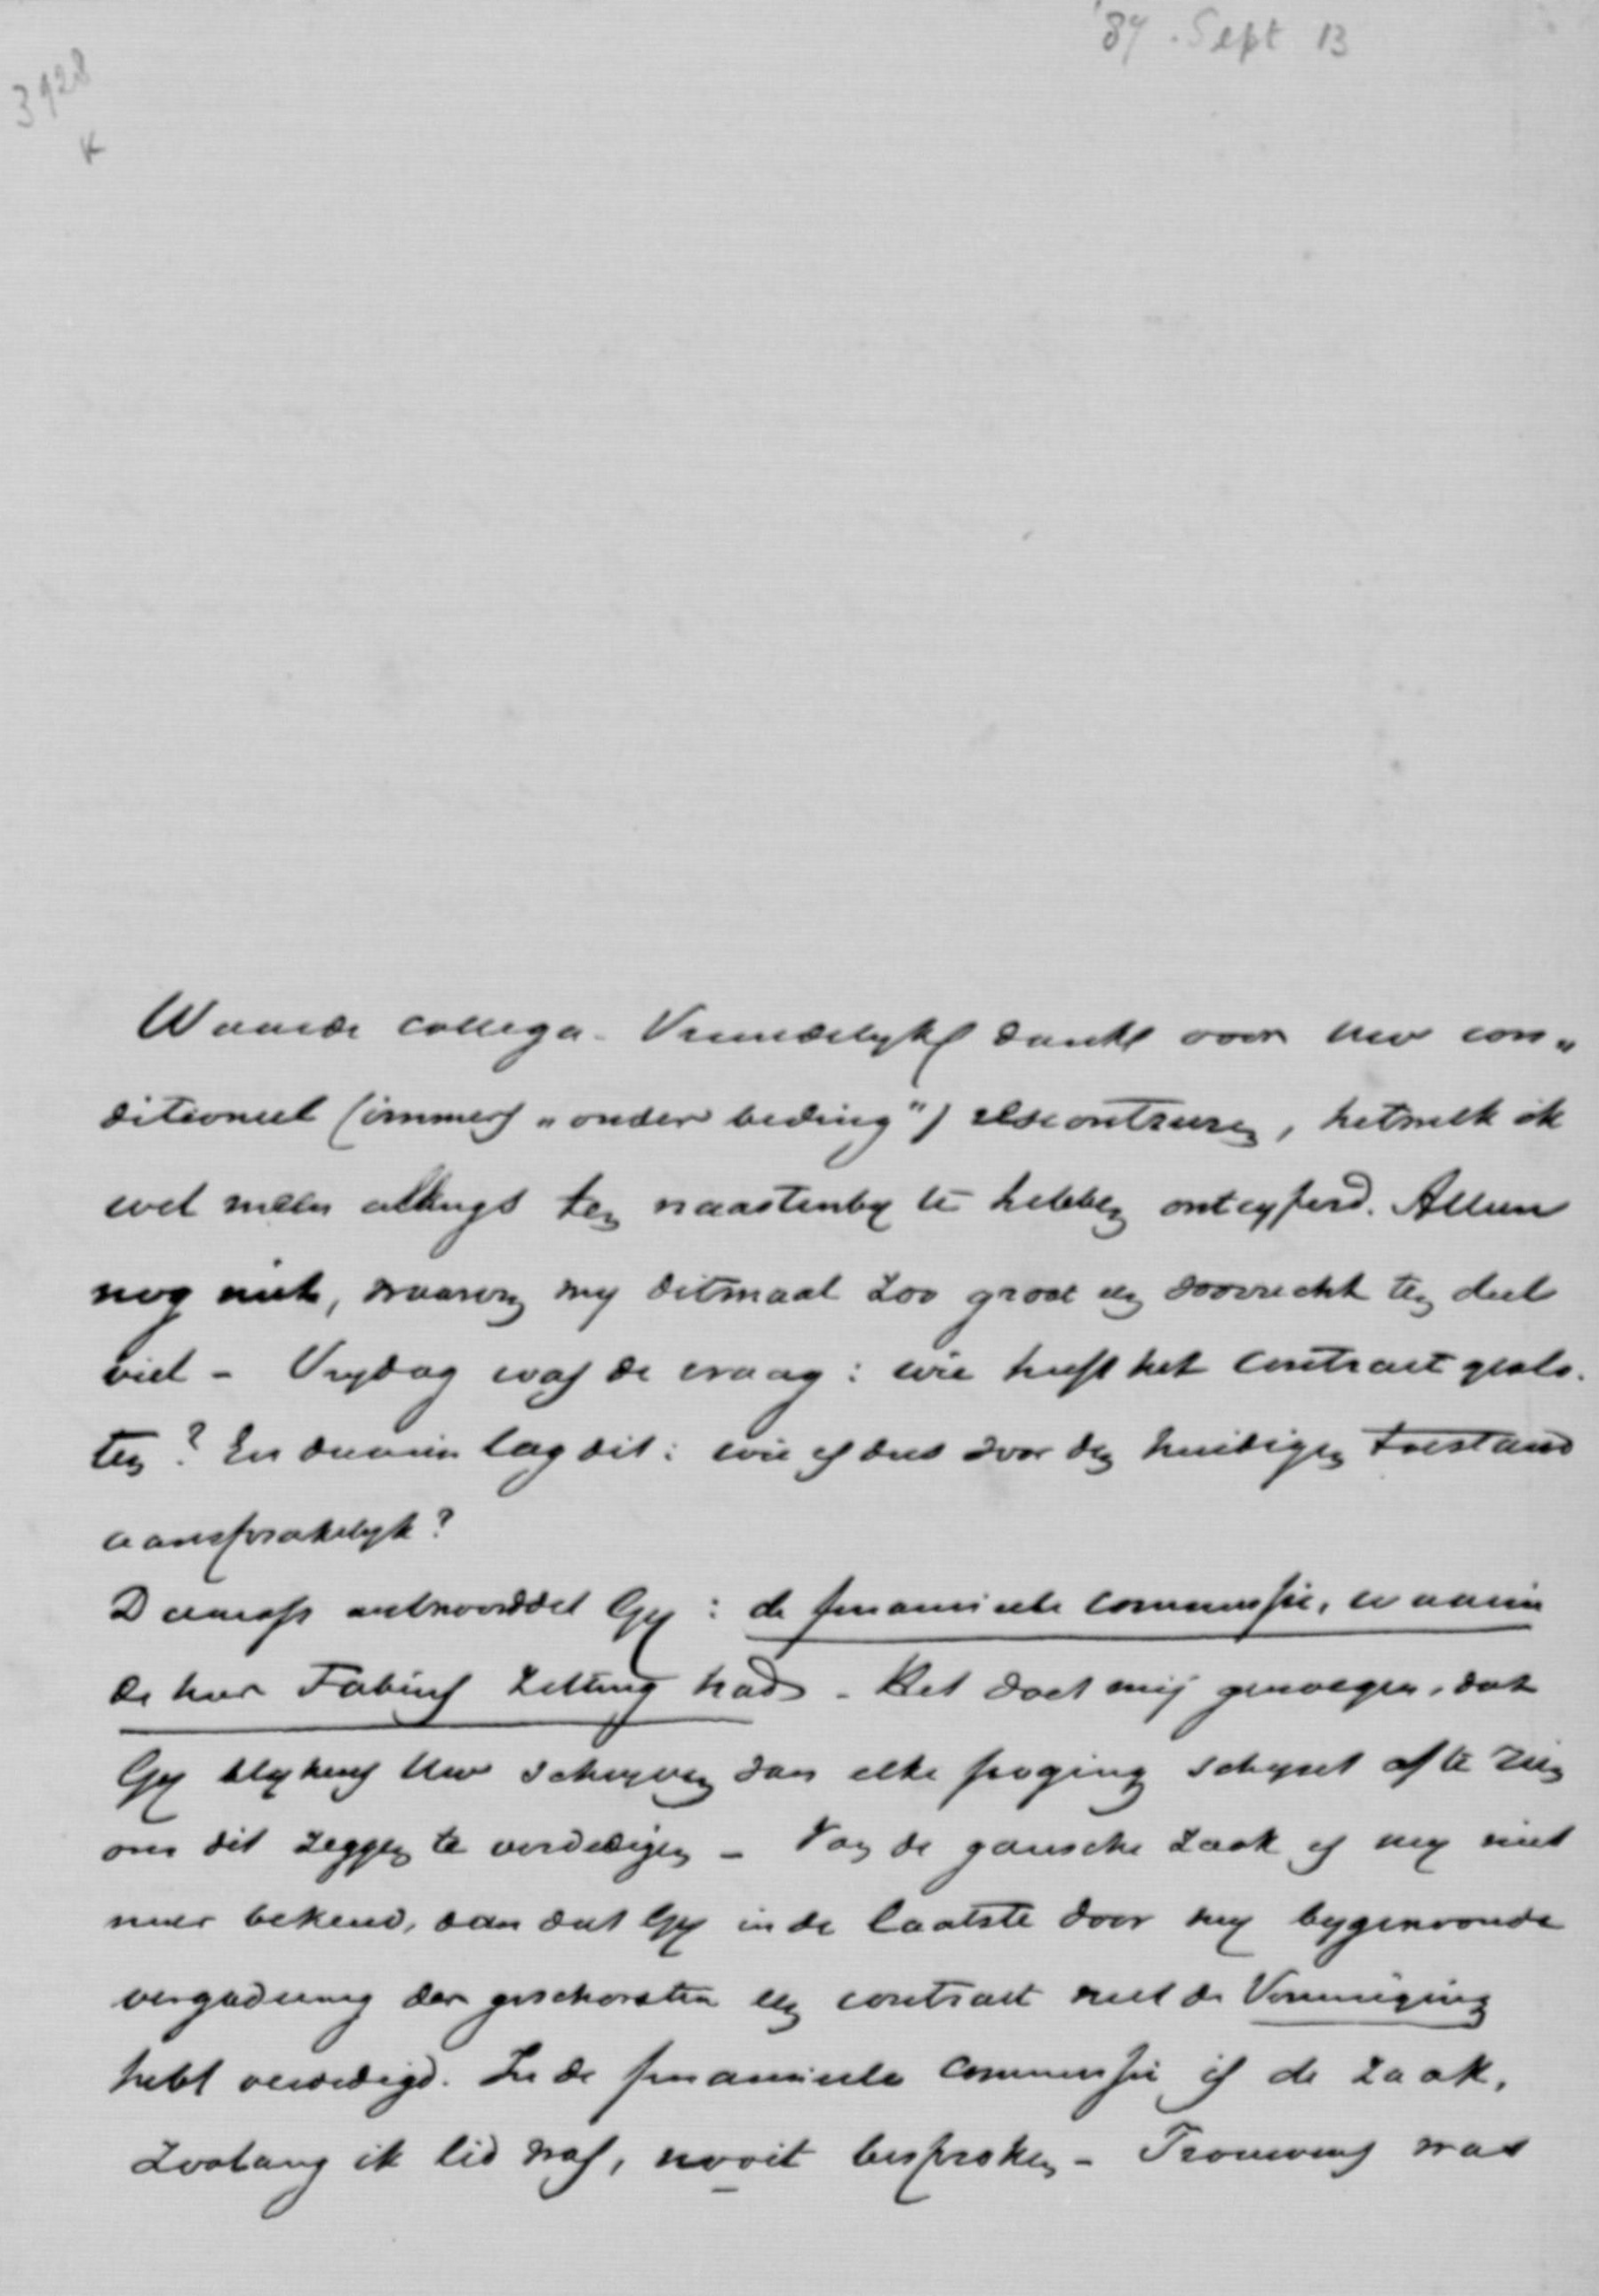 '87. Sept 13
3928
K
Waarde collega. Vriendelyke dank voor Uw con„
ditioneel (immers „onder beding") schryven, hetwelk ik
wel meen allengs ten naastenby te hebben ontcyferd. Alleen
nog niet, waarom my ditmaal zoo groot een voorrecht ten deel
viel – Vrydag was de vraag: wie heeft het contract geslo.
ten? En daarin lag dit: wie is dus voor den huidigen toestand
aansprakelyk?
Daarop antwoorddet Gy: de financieele commissie, waarin
de heer Fabius zitting had. Het doet mij genoegen, dat
Gy blykens Uw schryven van elke poging schynt af te zien
om dit zeggen te verdedigen – Van de gansche zaak is my niet
meer bekend, dan dat Gy in de laatste door my bygewoonde
vergadering der geschorsten een contract met de Vereeniging
hebt verdedigd. In de financieele commissie is de zaak,
zoolang ik lid was, nooit besproken – Trouwens was